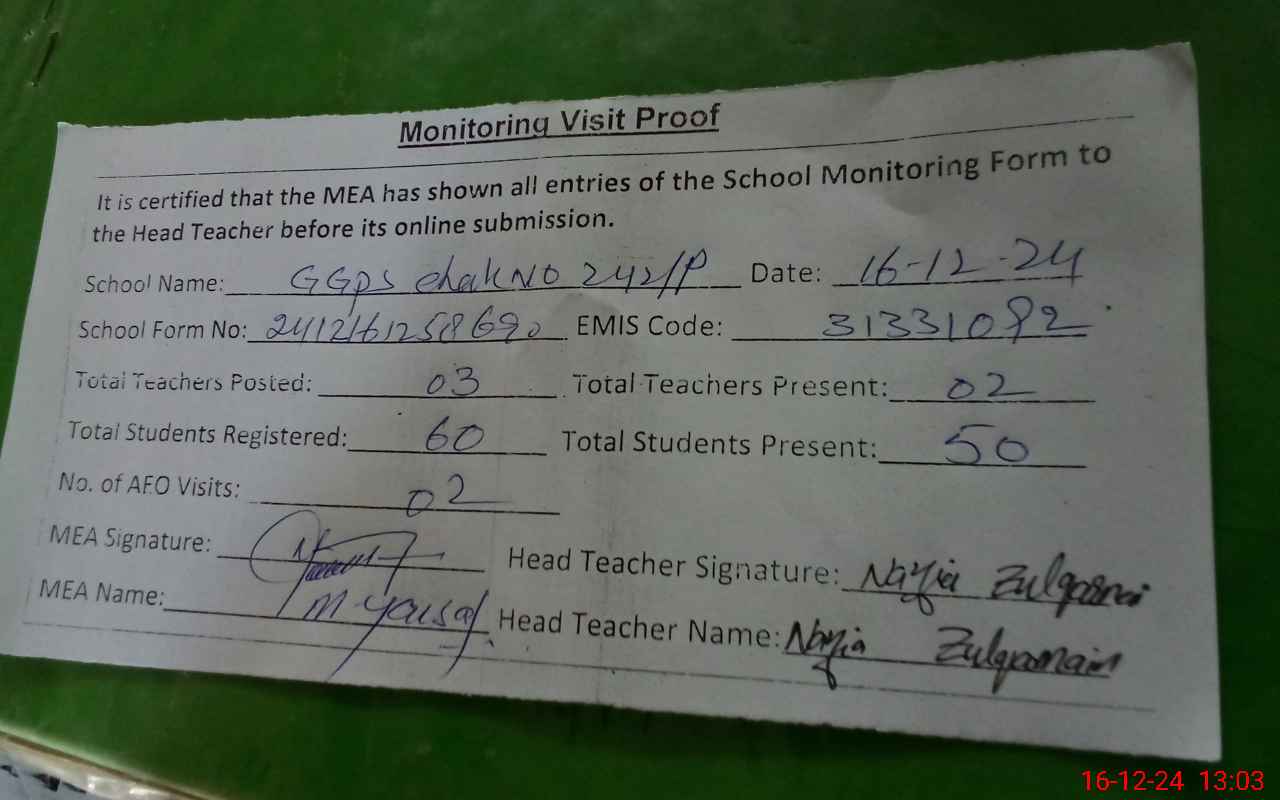 Monitoring Visit Proof
It is certified that the MEA has shown all entries of the School Monitoring Form to
the Head Teacher before its online submission.
School Name: GGPS chak NO 242/P Date: 16-12-24
School Form No: 24121612518690 EMIS Code: 31331092
Total Teachers Posted: 03 Total Teachers Present: 02
Total Students Registered: 60 Total Students Present: 50
No. of AEO Visits: 02
MEA Signature: Head Teacher Signature: Nazia
MEA Name: M-yousaf Head Teacher Name: Nazia Zulqarnain
16-12-24 13:03